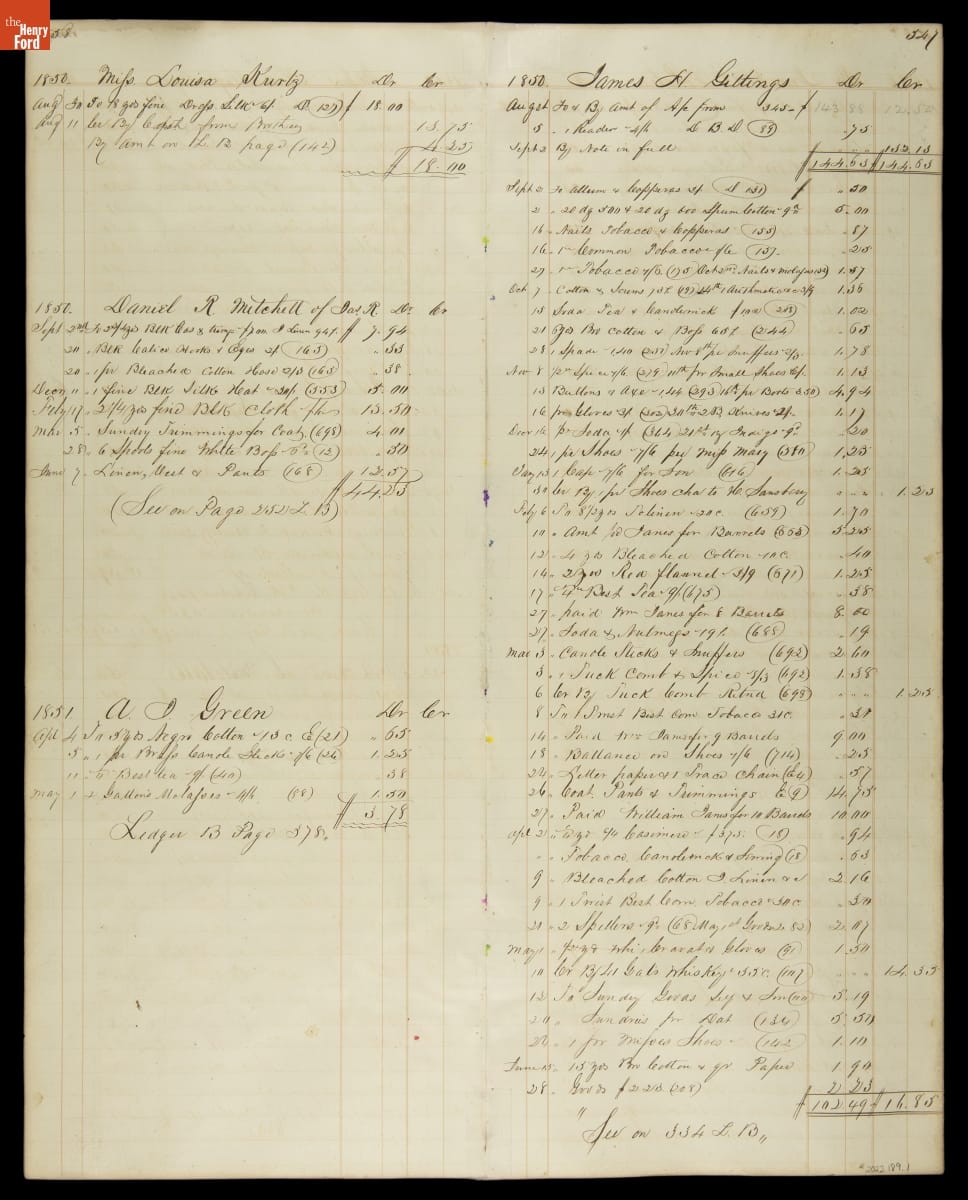 the
Henry
Ford
547
1850. Miss Louisa Kurtz Dr Cr
Aug 30 To 18 yds fine Dress Silk 6/. D (127) $ 18.00
Aug 11 Cr By Cash from Brother 13.75
By amt on L. B page (142) 4.25
$ 18.00
1850. Daniel R Mitchell of Jas R. Dr Cr
Sept 2nd 7.94
20 " Blk Calico Hooks & Eyes 2/. (163) " 33
20 " 1 pr Bleached Cotton Hose 2/3 (163) " 38
Decm 11 " 1 fine Blk Silk Hat - 30/. (353) 5.00
Feby 17 " 2 1/4 yds fine Blk Cloth 13.50
Mar 5 " Sundry Trimmings for Coat (698) 4.01
28 " 6 Spools fine White (12) " 50
June 7 " Linen, Vest & Pants (168) 12.57
$ 44.23
(See on Page 252 L. B)
1851. A. I. Green Dr Cr
Apl 4 To 5 yds Negro Cotton - 13 c. E (21) " 65
5 " 1 pr Brass Candle Sticks - 7/6 (26) 1.25
11 " Best tea - 9/ (40) 38
May 1 " 2 Gallons Molasses - 4/6 (88) 1.50
$ 3.78
Ledger B Page 378.
1850. James H Gittings Dr Cr
Aug 1st To & By Amt of A/c from 345 - $ 143 88 12.50
5 " 1 Reader - 4/6 D B. D (89) " 75
Sept 2 By Note in full 132.13
$ 144.63 $ 144.63
Sept 2 To Allum & Copperas 2/. (D 131) $ " 30
2 " 20 dg 500 & 20 dg 600 Spun Cotton - 9/- 5.00
16 " Nails Tobacco & Copperas (155) " 87
16 " Common Tobacco (157) " 25
27 " Tobacco (175) Oct 2nd Nails & Molasses 1.57
Oct 7 " Cotton & Screws (19) 14th 1 Arithmetic 1.36
13 Soda Tea & Candlewick (218) 1.02
21 Bro Cotton & (244) " 65
28 1 Spade - 1.40 (251) Nov 8th pr Snuffers 2/3. 1.78
Nov 8 (279) 11th pr Small Shoes 6/. 1.13
13 Buttons & Axe - 1.44 (293) 16th pr Boots 3.50 4.94
16 pr Gloves 2/. (302) 30th Knives 2/. 1.17
Decr 16 " Soda (364) 21st Indigo " 20
24 1 pr Shoes - 7/6 per Miss Mary (380) 1.25
Jany 13 1 Cap - 7/6 for Son (616) 1.25
30 Cr By 1 pr Shoes cha to H. Sansbery " " " 1.25
Feby 6 To 8 1/2 yds - 20 c. (659) 1.70
10 " Amt pd Janes for Barrels (653) 5.25
12 " 4 yds Bleached Cotton - 10 c. " 40
14 " 2 yds Red flannel - 3/9 (671) 1.25
17 " Best Tea - 9/ (675) " 38
27 " paid Wm Janes for 8 Barrels 8.00
27 " Soda & Nutmegs - 19 c. (688) " 19
Mar 3 " Candle Sticks & Snuffers (692) 2.60
3 " 1 Tuck Comb & Spice - 8/3 (692) 1.38
6 Cr By Tuck Comb Retnd (698) " " " 1.25
8 To 1 Twist Best Com Tobacco 31 c. " 31
14 " Paid Wm Janes for 9 Barrels 9.00
18 " Ballance on Shoes - 1/6 (714) " 25
24 " Letter paper & 1 Trace Chain (E 4) " 57
26 " Coat, Pants & Trimmings E (9) 14.75
27 " Paid William Janes for 10 Barrels 10.00
Apl 2 " Casimere - $ 3.75. (18) " 94
" " Tobacco, Candlewick & (18) " 63
9 " Bleached Cotton & Linen 2.16
9 " 1 Twist Best Com. Tobacco - 30 c. " 30
21 " 2 Spellers - 9/- (68) May 1st Goods 82) 2.07
May 1 " Cravat & Gloves (91) 1.50
10 Cr By 41 Gals Whiskey - 35 c. (107) " " " 14.35
12 To Sundry Goods Self & Son (110) 5.19
20 " Sundries pr Hat (134) 5.50
26 " 1 pr Misses Shoes - (142) 1.10
June 13 " 15 yds Bro Cotton & qr Paper 1.90
28 " Goods $ 2.23 (208) 2.23
$ 102.49 $ 16.85
" See on 334 L. B "
2022.189.1